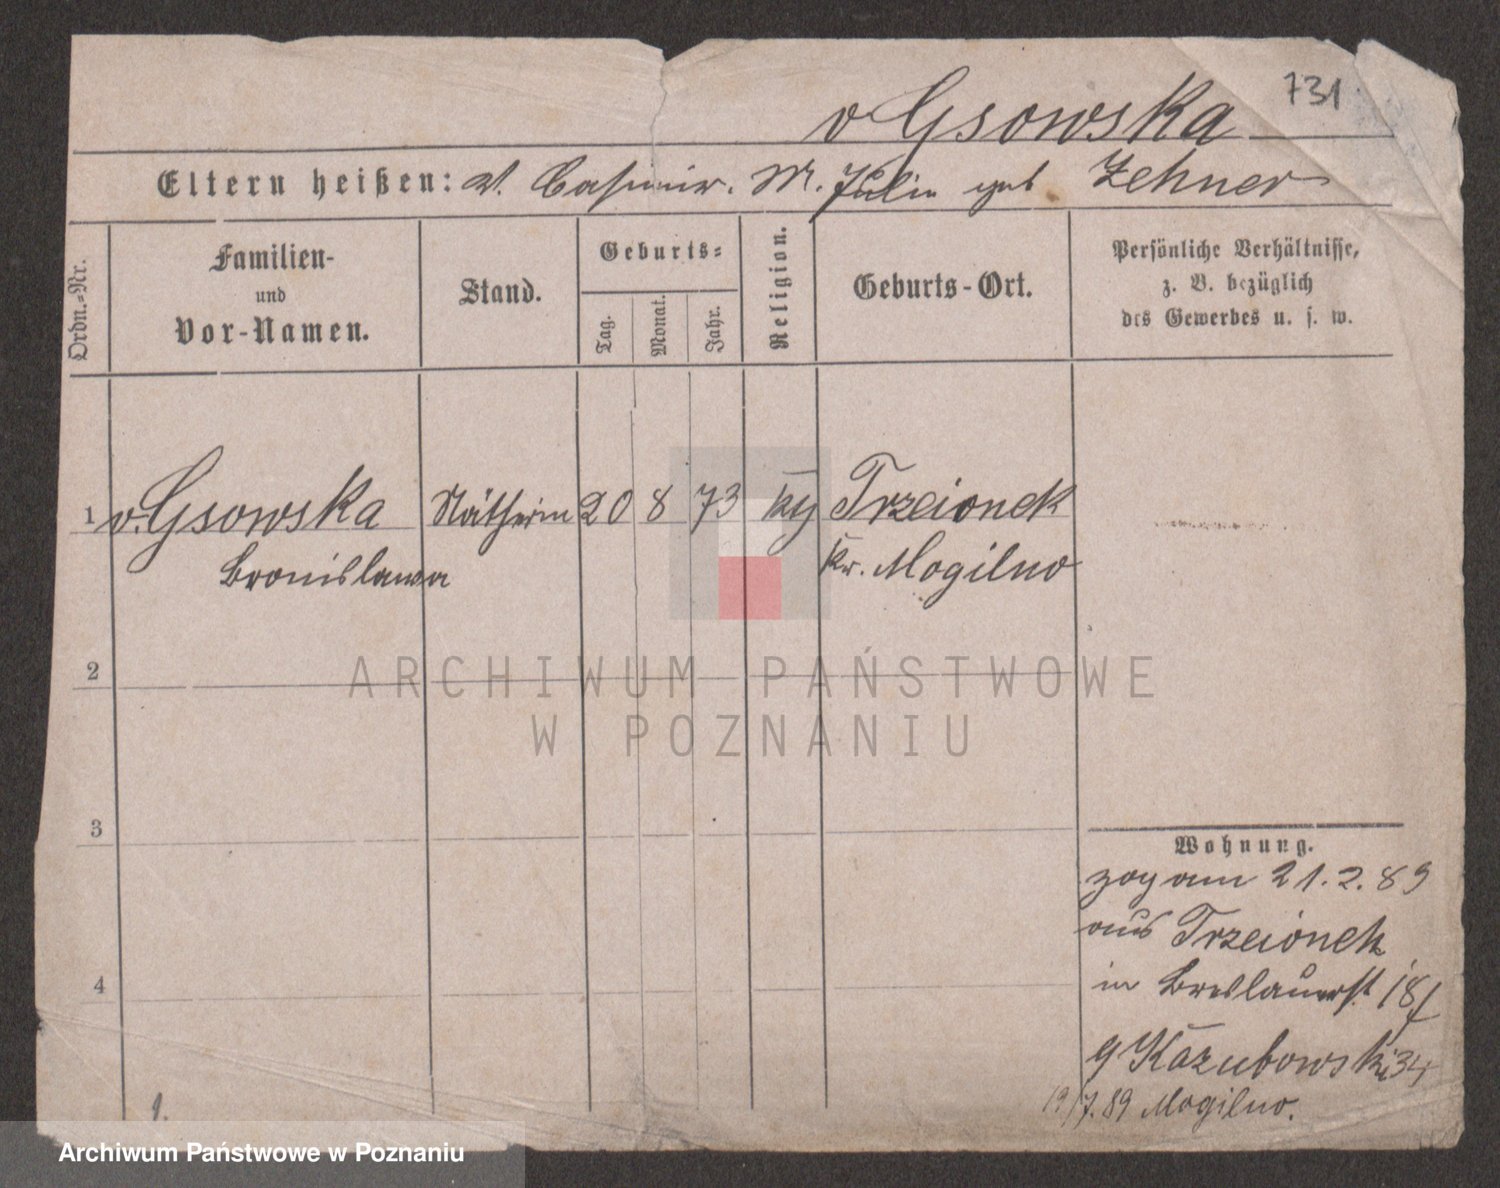 731
v Gsowska
Eltern heißen: V. Casimir. M. Julie geb Zehner
Ordn.=Nr.
Familien-
und
Vor-Namen.
Stand.
Geburts=
Tag.
Monat.
Jahr.
Religion.
Geburts-Ort.
Persönliche Verhältnisse,
z. B. bezüglich
des Gewerbes u. s. w.
1 v. Gsowska Nätherin 20 8 73 Trzcionek
Bronislawa Kr. Mogilno
2
ARCHIWUM PAŃSTWOWE
W POZNANIU
3
Wohnung.
zog am 21.2.89
aus Trzcionek
in Breslauerst. 18
4
Kazubowski 34
19/7.89 Mogilno.
1.
Archiwum Państwowe w Poznaniu